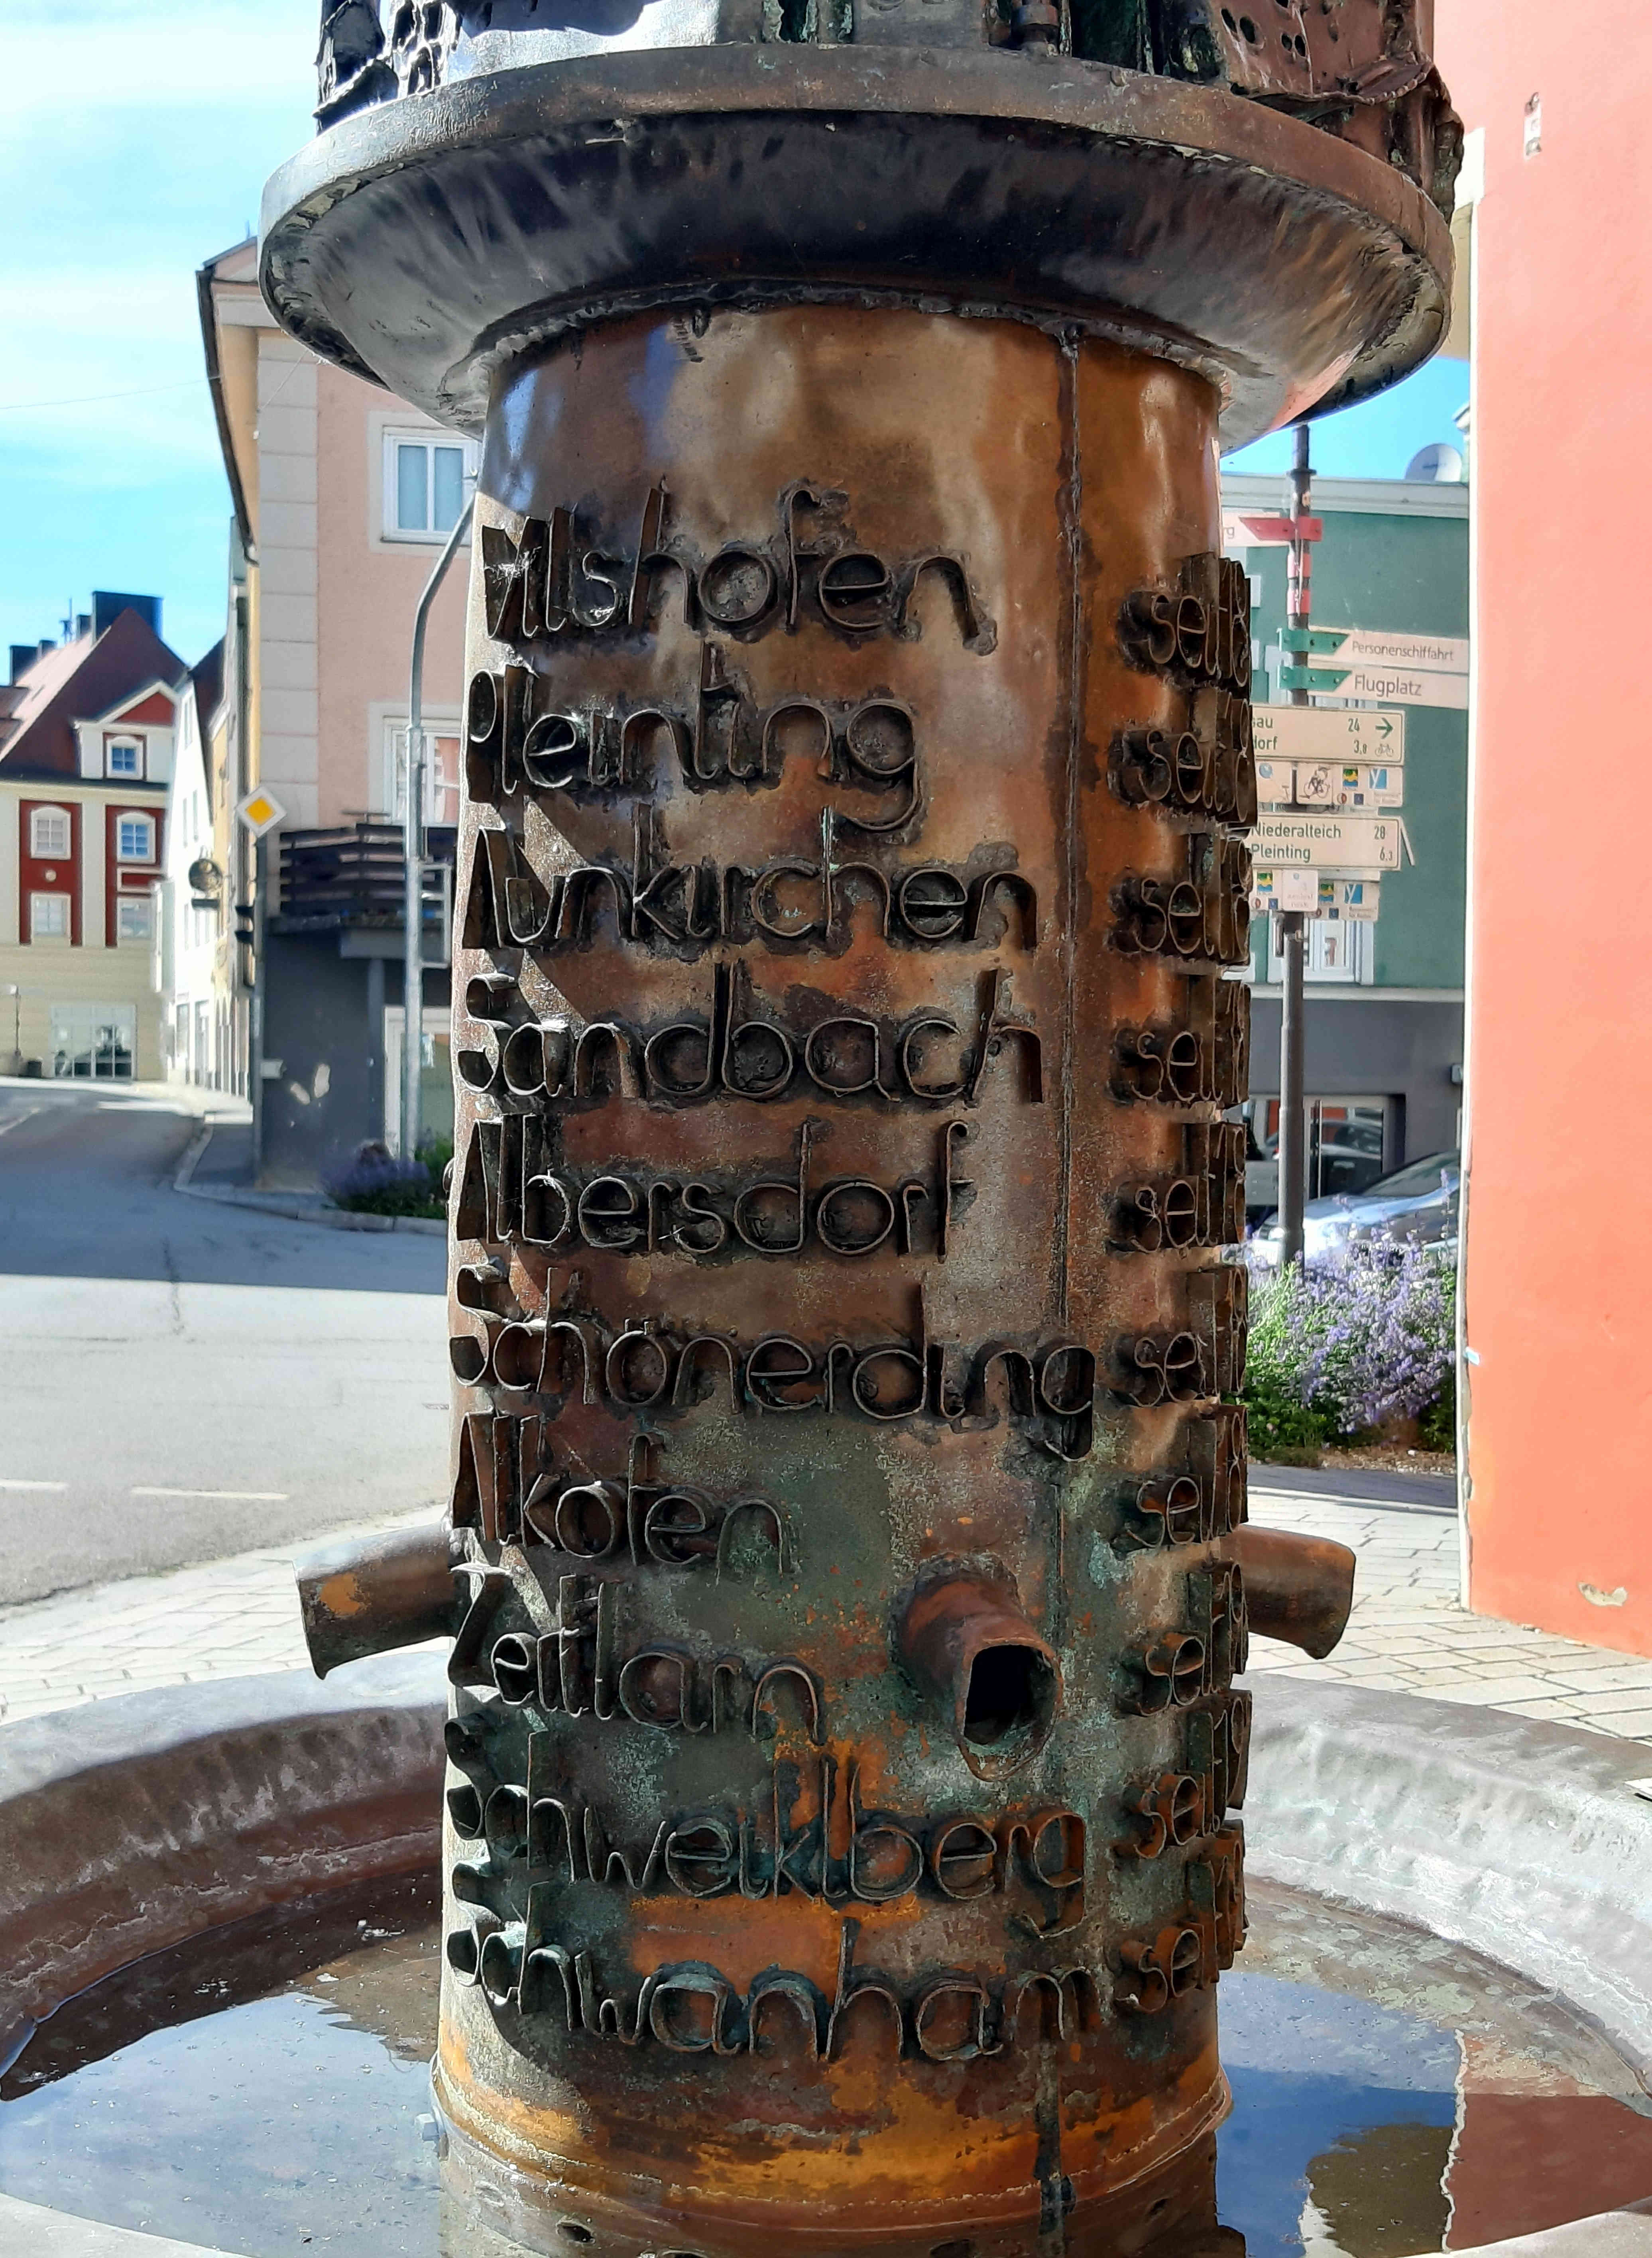 Vilshofen seit
Pleinting seit
Aunkirchen seit
Sandbach seit
Albersdorf seit
Schönerding seit
Alkofen seit
Zeitlarn seit
Schweiklberg seit
Schwanham seit
Personenschiffahrt
Flugplatz
24
3,8
Niederalteich 28
Pleinting 6,3